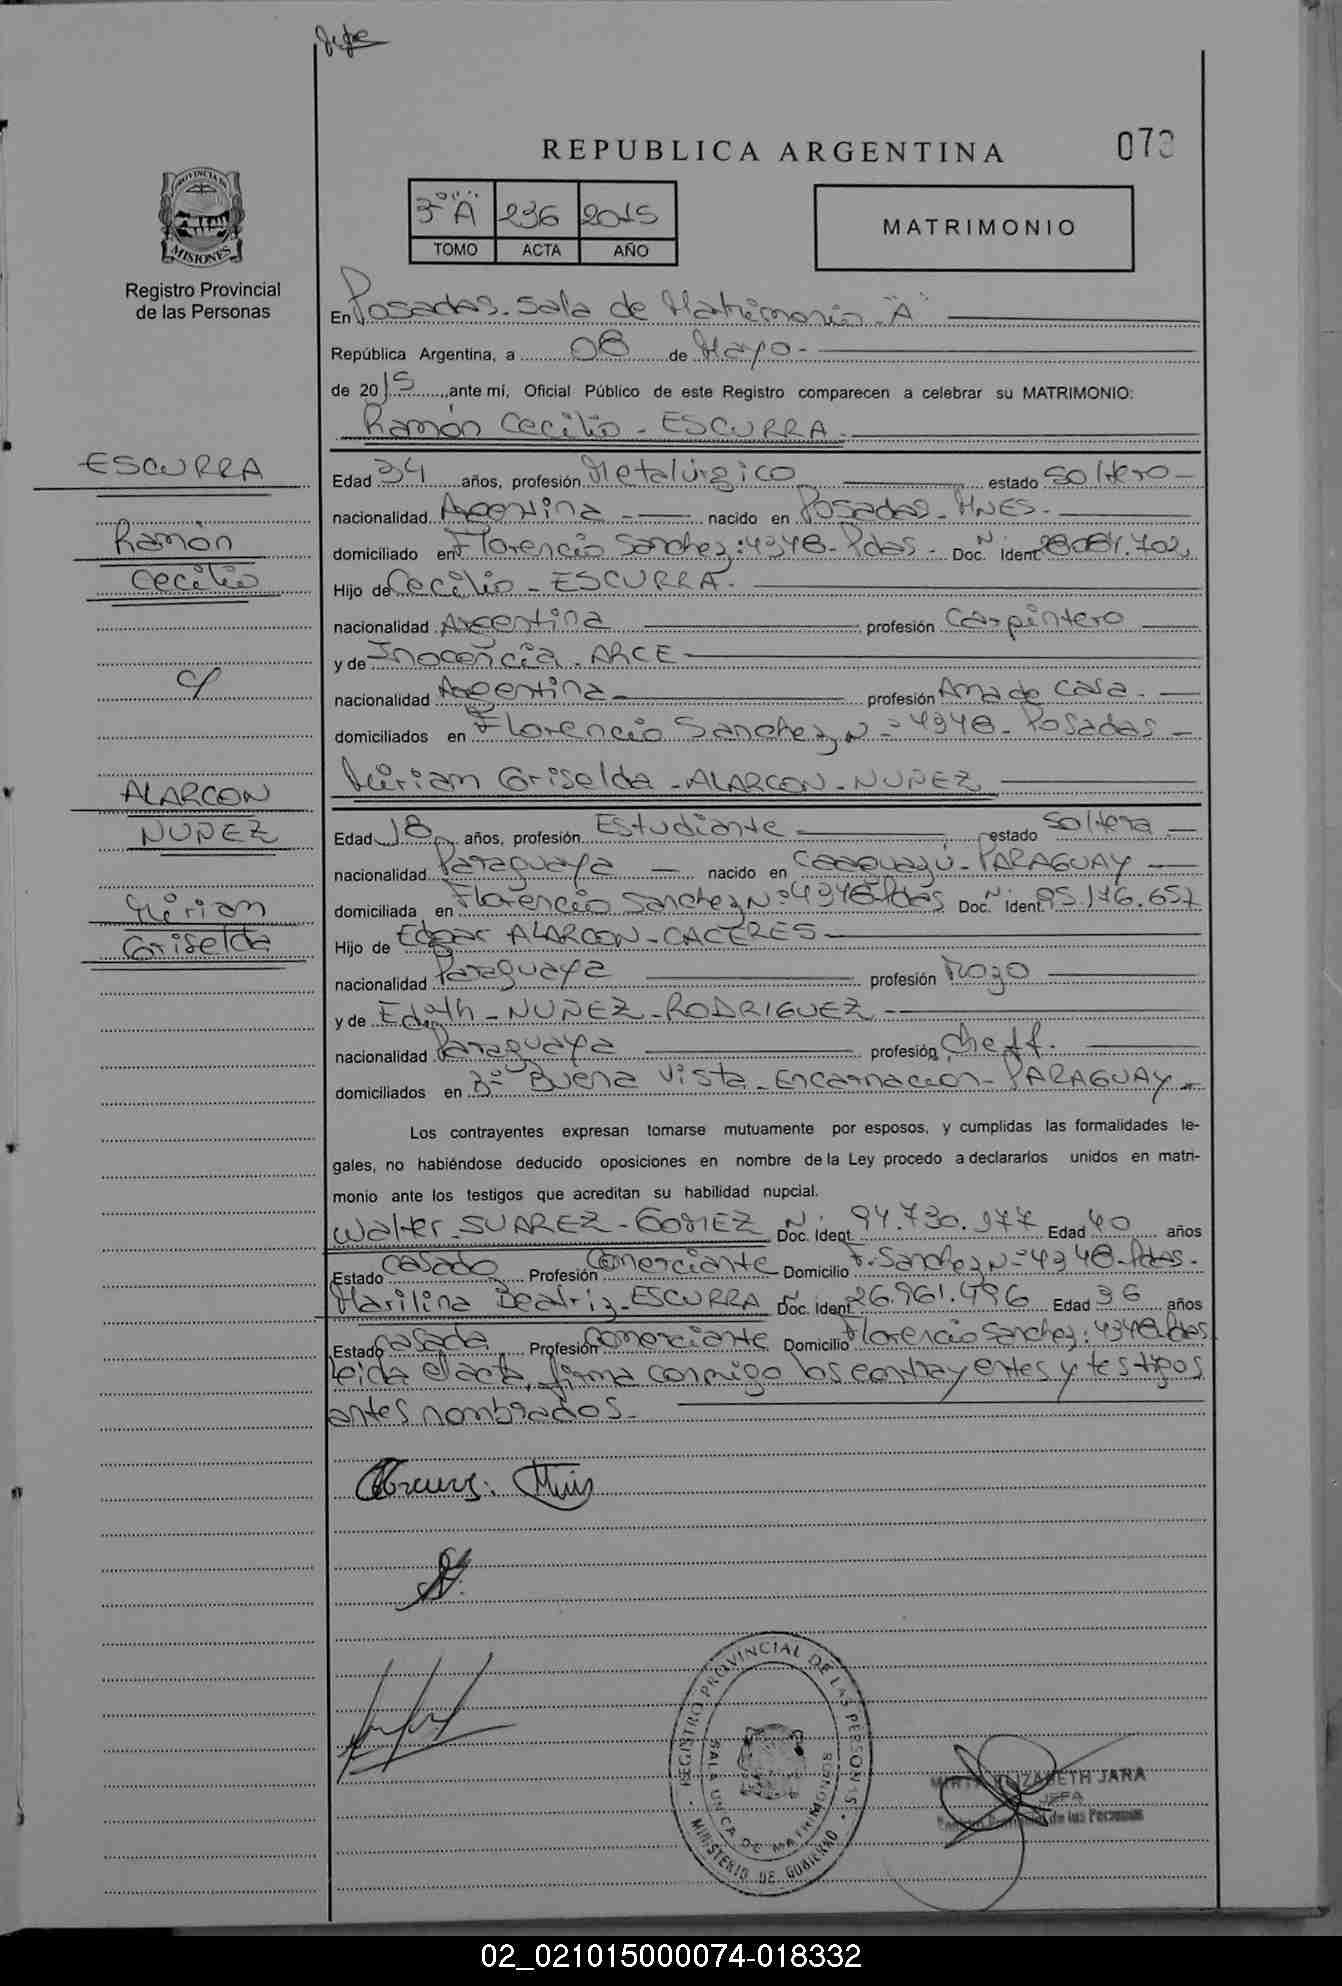 REPUBLICA ARGENTINA
073
PROVINCIA DE
MISIONES
Registro Provincial
de las Personas
3º "A" 236 2015
TOMO ACTA AÑO
MATRIMONIO
En Posadas. Sala de Matrimonio - "A"
República Argentina, a 08 de Mayo -
de 2015, ante mí, Oficial Público de este Registro comparecen a celebrar su MATRIMONIO:
Ramón Cecilio - ESCURRA -
ESCURRA
Ramón
Cecilio
c/
ALARCON
NUÑEZ
Mirian
Griselda
Edad 34 años, profesión Metalúrgico estado Soltero -
nacionalidad Argentina - nacido en Posadas - MNES -
domiciliado en Florencio Sanchez: 4348 - Pdas - Doc. Nº Ident. 28.084.702
Hijo de Cecilio - ESCURRA -
nacionalidad Argentina profesión Carpintero
y de Inocencia - ARCE -
nacionalidad Argentina - profesión Ama de casa. -
domiciliados en Florencio Sanchez Nº 4348 - Posadas -
Mirian Griselda - ALARCON - NUÑEZ
Edad 18 años, profesión Estudiante estado Soltera -
nacionalidad Paraguaya - nacido en Caaguazú - PARAGUAY -
domiciliada en Florencio Sanchez Nº 4348 Pdas Doc. Nº Ident. 95.176.657
Hijo de Edgar ALARCON - CACERES -
nacionalidad Paraguaya profesión Mozo
y de Edith - NUÑEZ - RODRIGUEZ -
nacionalidad Paraguaya profesión Cheff.
domiciliados en Bº Buena Vista - Encarnacion - PARAGUAY -
Los contrayentes expresan tomarse mutuamente por esposos, y cumplidas las formalidades le-
gales, no habiéndose deducido oposiciones en nombre de la Ley procedo a declararlos unidos en matri-
monio ante los testigos que acreditan su habilidad nupcial.
Walter - SUAREZ - GOMEZ Doc. Nº Ident. 94.730.977 Edad 40 años
Estado Casado Profesión Comerciante Domicilio F. Sanchez Nº 4348 - Pdas -
Marilina Beatriz - ESCURRA Doc. Ident. 26.961.496 Edad 36 años
Estado Casada Profesión Comerciante Domicilio Florencio Sanchez: 4348 Pdas
leida el acta, firma conmigo los contrayentes y testigos
antes nombrados -
REGISTRO PROVINCIAL DE LAS PERSONAS
SALA UNICA DE MATRIMONIOS
MINISTERIO DE GOBIERNO
MIRTA ELIZABETH JARA
JEFA
de las Personas
02_021015000074-018332